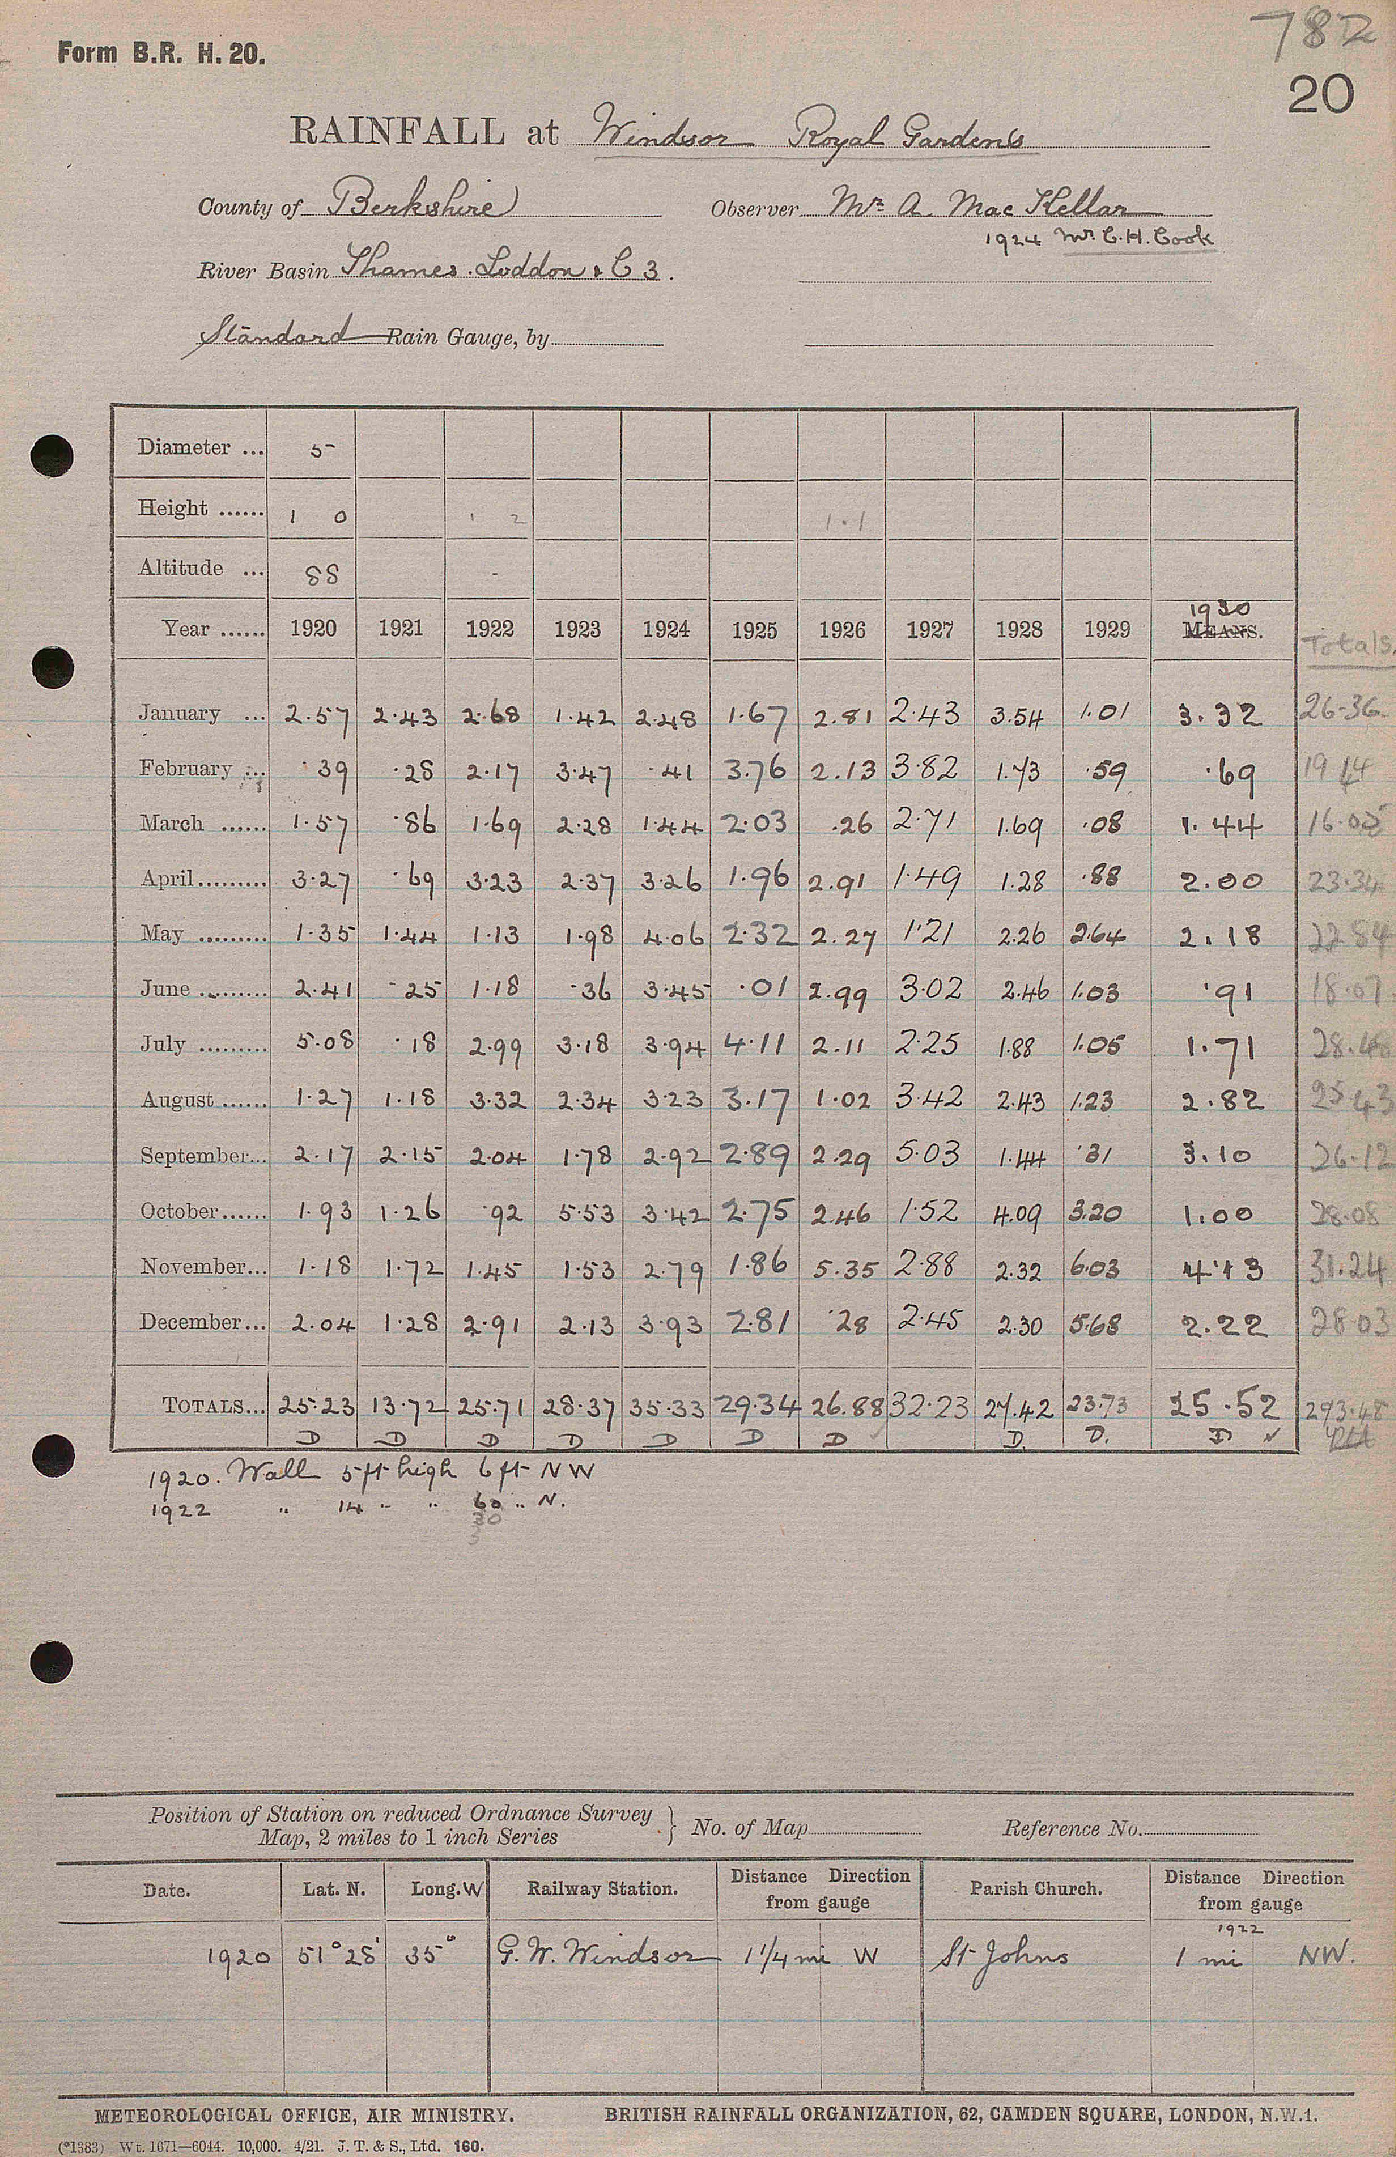 782
Form B.R. H. 20.
20
RAINFALL at Windsor Royal Gardens
County of Berkshire Observer Mr A. MacKellar
1924 Mr C.H. Cook
River Basin Thames. Loddon & C 3.
Standard Rain Gauge, by
Diameter ... 5
Height ...... 1 0 1 2 1.1
Altitude ... 88 -
1930
Year ...... 1920 1921 1922 1923 1924 1925 1926 1927 1928 1929 MEANS. Totals.
January ... 2.57 2.43 2.68 1.42 2.48 1.67 2.81 2.43 3.54 1.01 3.32 26.36
February ... .39 .28 2.17 3.47 .41 3.76 2.13 3.82 1.73 .59 .69 19 44
March ...... 1.57 .86 1.69 2.28 1.44 2.03 .26 2.71 1.69 .08 1.44 16.05
April ......... 3.27 .69 3.23 2.37 3.26 1.96 2.91 1.49 1.28 .88 2.00 23.34
May ......... 1.35 1.44 1.13 1.98 4.06 2.32 2.27 1.21 2.26 2.64 2.18 22.84
June ......... 2.41 .25 1.18 .36 3.45 .01 2.99 3.02 2.46 1.03 .91 18.07
July ......... 5.08 .18 2.99 3.18 3.94 4.11 2.11 2.25 1.88 1.05 1.71 28.48
August ...... 1.27 1.18 3.32 2.34 3.23 3.17 1.02 3.42 2.43 1.23 2.82 25.43
September... 2.17 2.15 2.04 1.78 2.92 2.89 2.29 5.03 1.44 .31 3.10 26.12
October ...... 1.93 1.26 .92 5.53 3.42 2.75 2.46 1.52 4.09 3.20 1.00 28.08
November... 1.18 1.72 1.45 1.53 2.79 1.86 5.35 2.88 2.32 6.03 4.13 31.24
December... 2.04 1.28 2.91 2.13 3.93 2.81 .28 2.45 2.30 5.68 2.22 28.03
TOTALS... 25.23 13.72 25.71 28.37 35.33 29.34 26.88 32.23 27.42 23.73 25.52 293.48
D D D D D D D D. D. D
1920. Wall 5 ft high 6 ft NW
1922 " 14 " " 60 " N.
30
Position of Station on reduced Ordnance Survey
Map, 2 miles to 1 inch Series } No. of Map Reference No.
Date. Lat. N. Long. W Railway Station. Distance Direction from gauge Parish Church. Distance Direction from gauge
1922
1920 51° 28' 35" G. W. Windsor 1 1/4 mi W St Johns 1 mi NW.
METEOROLOGICAL OFFICE, AIR MINISTRY. BRITISH RAINFALL ORGANIZATION, 62, CAMDEN SQUARE, LONDON, N.W.1.
(*1383) Wt. 1671—6044. 10,000. 4/21. J. T. & S., Ltd. 160.